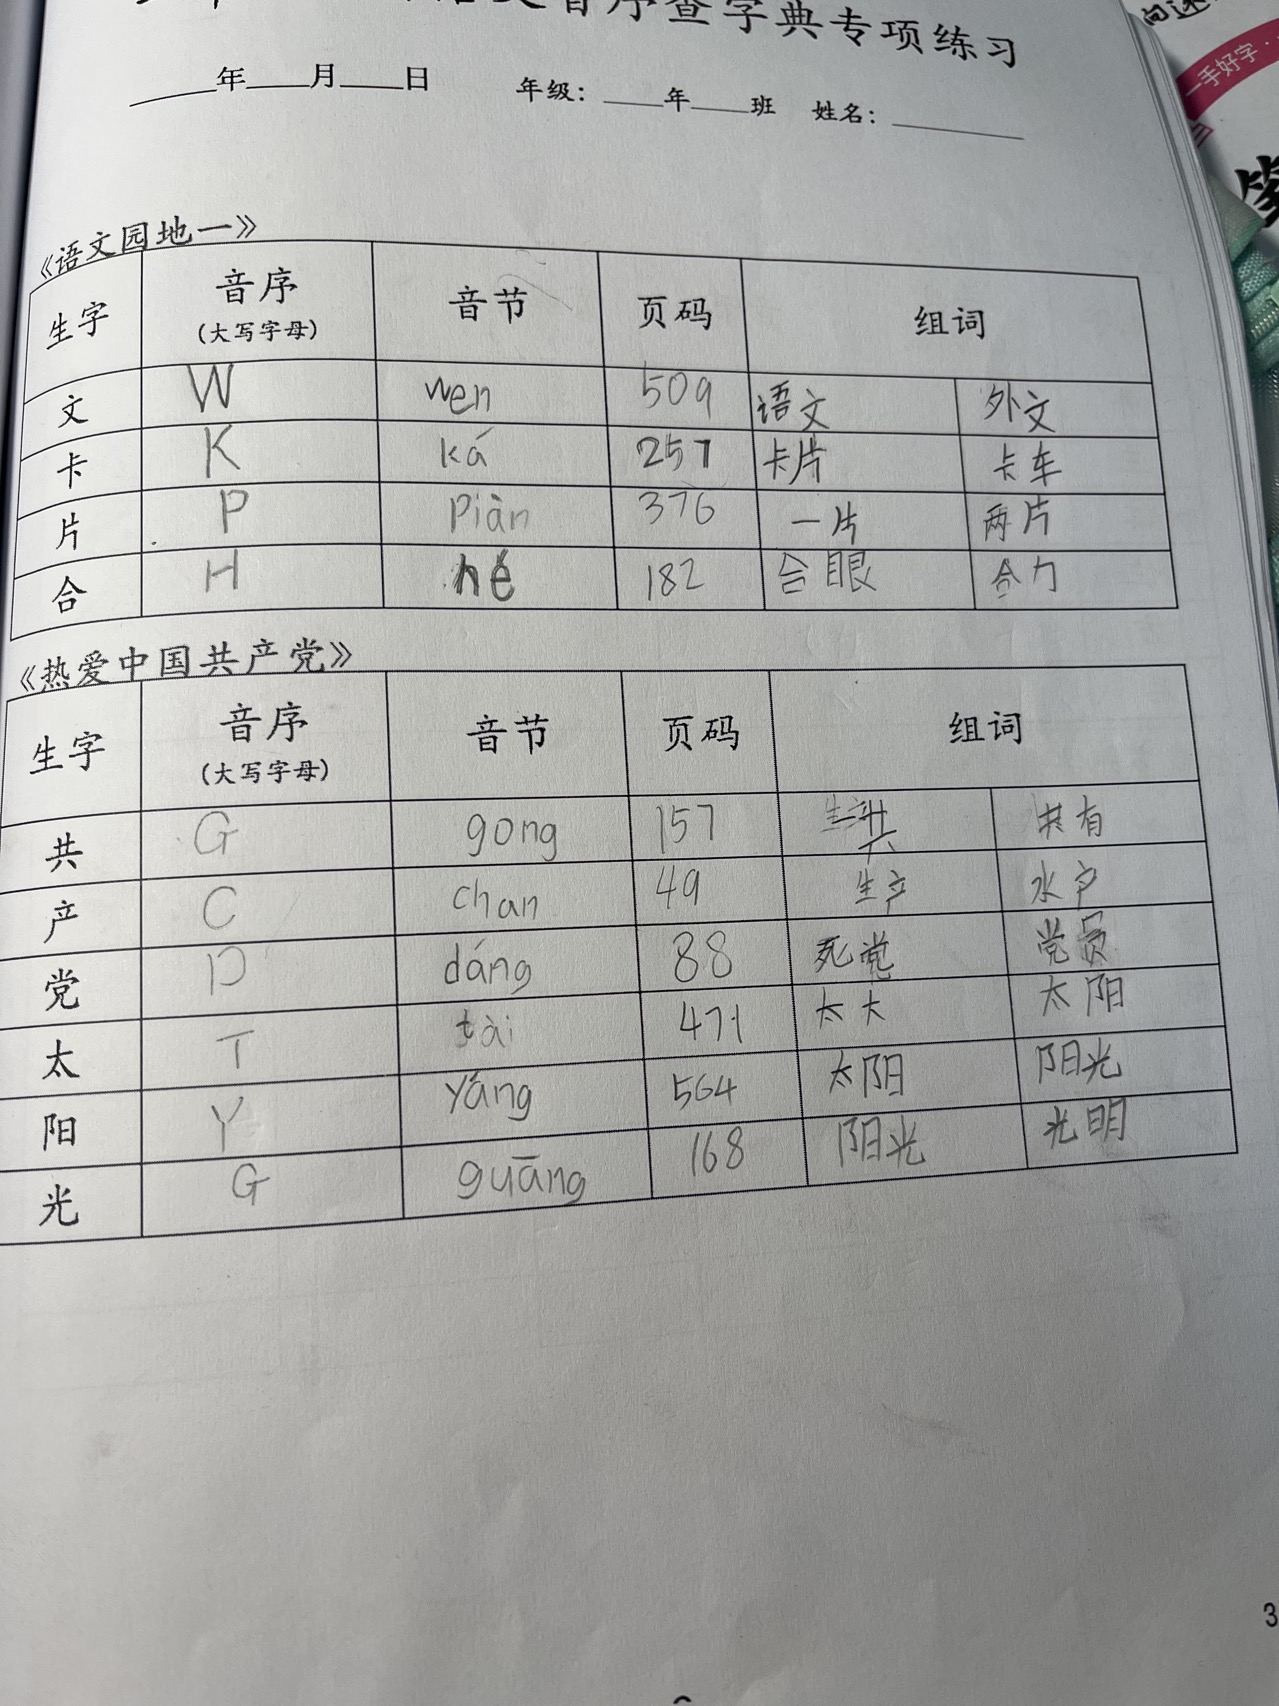 音序查字典专项练习
____年____月____日 年级：____年____班 姓名：________
一手好字
《语文园地一》
生字 音序 音节 页码 组词
（大写字母）
文 W wen 509 语文 外文
卡 K ká 257 卡片 卡车
片 P piàn 376 一片 两片
合 H hé 182 合眼 合力
《热爱中国共产党》
生字 音序 音节 页码 组词
（大写字母）
共 G gong 157 共有
产 C chan 49 生产 水产
党 D dáng 88 死党 党员
太 T tài 471 太大 太阳
阳 Y yáng 564 太阳 阳光
光 G guāng 168 阳光 光明
3